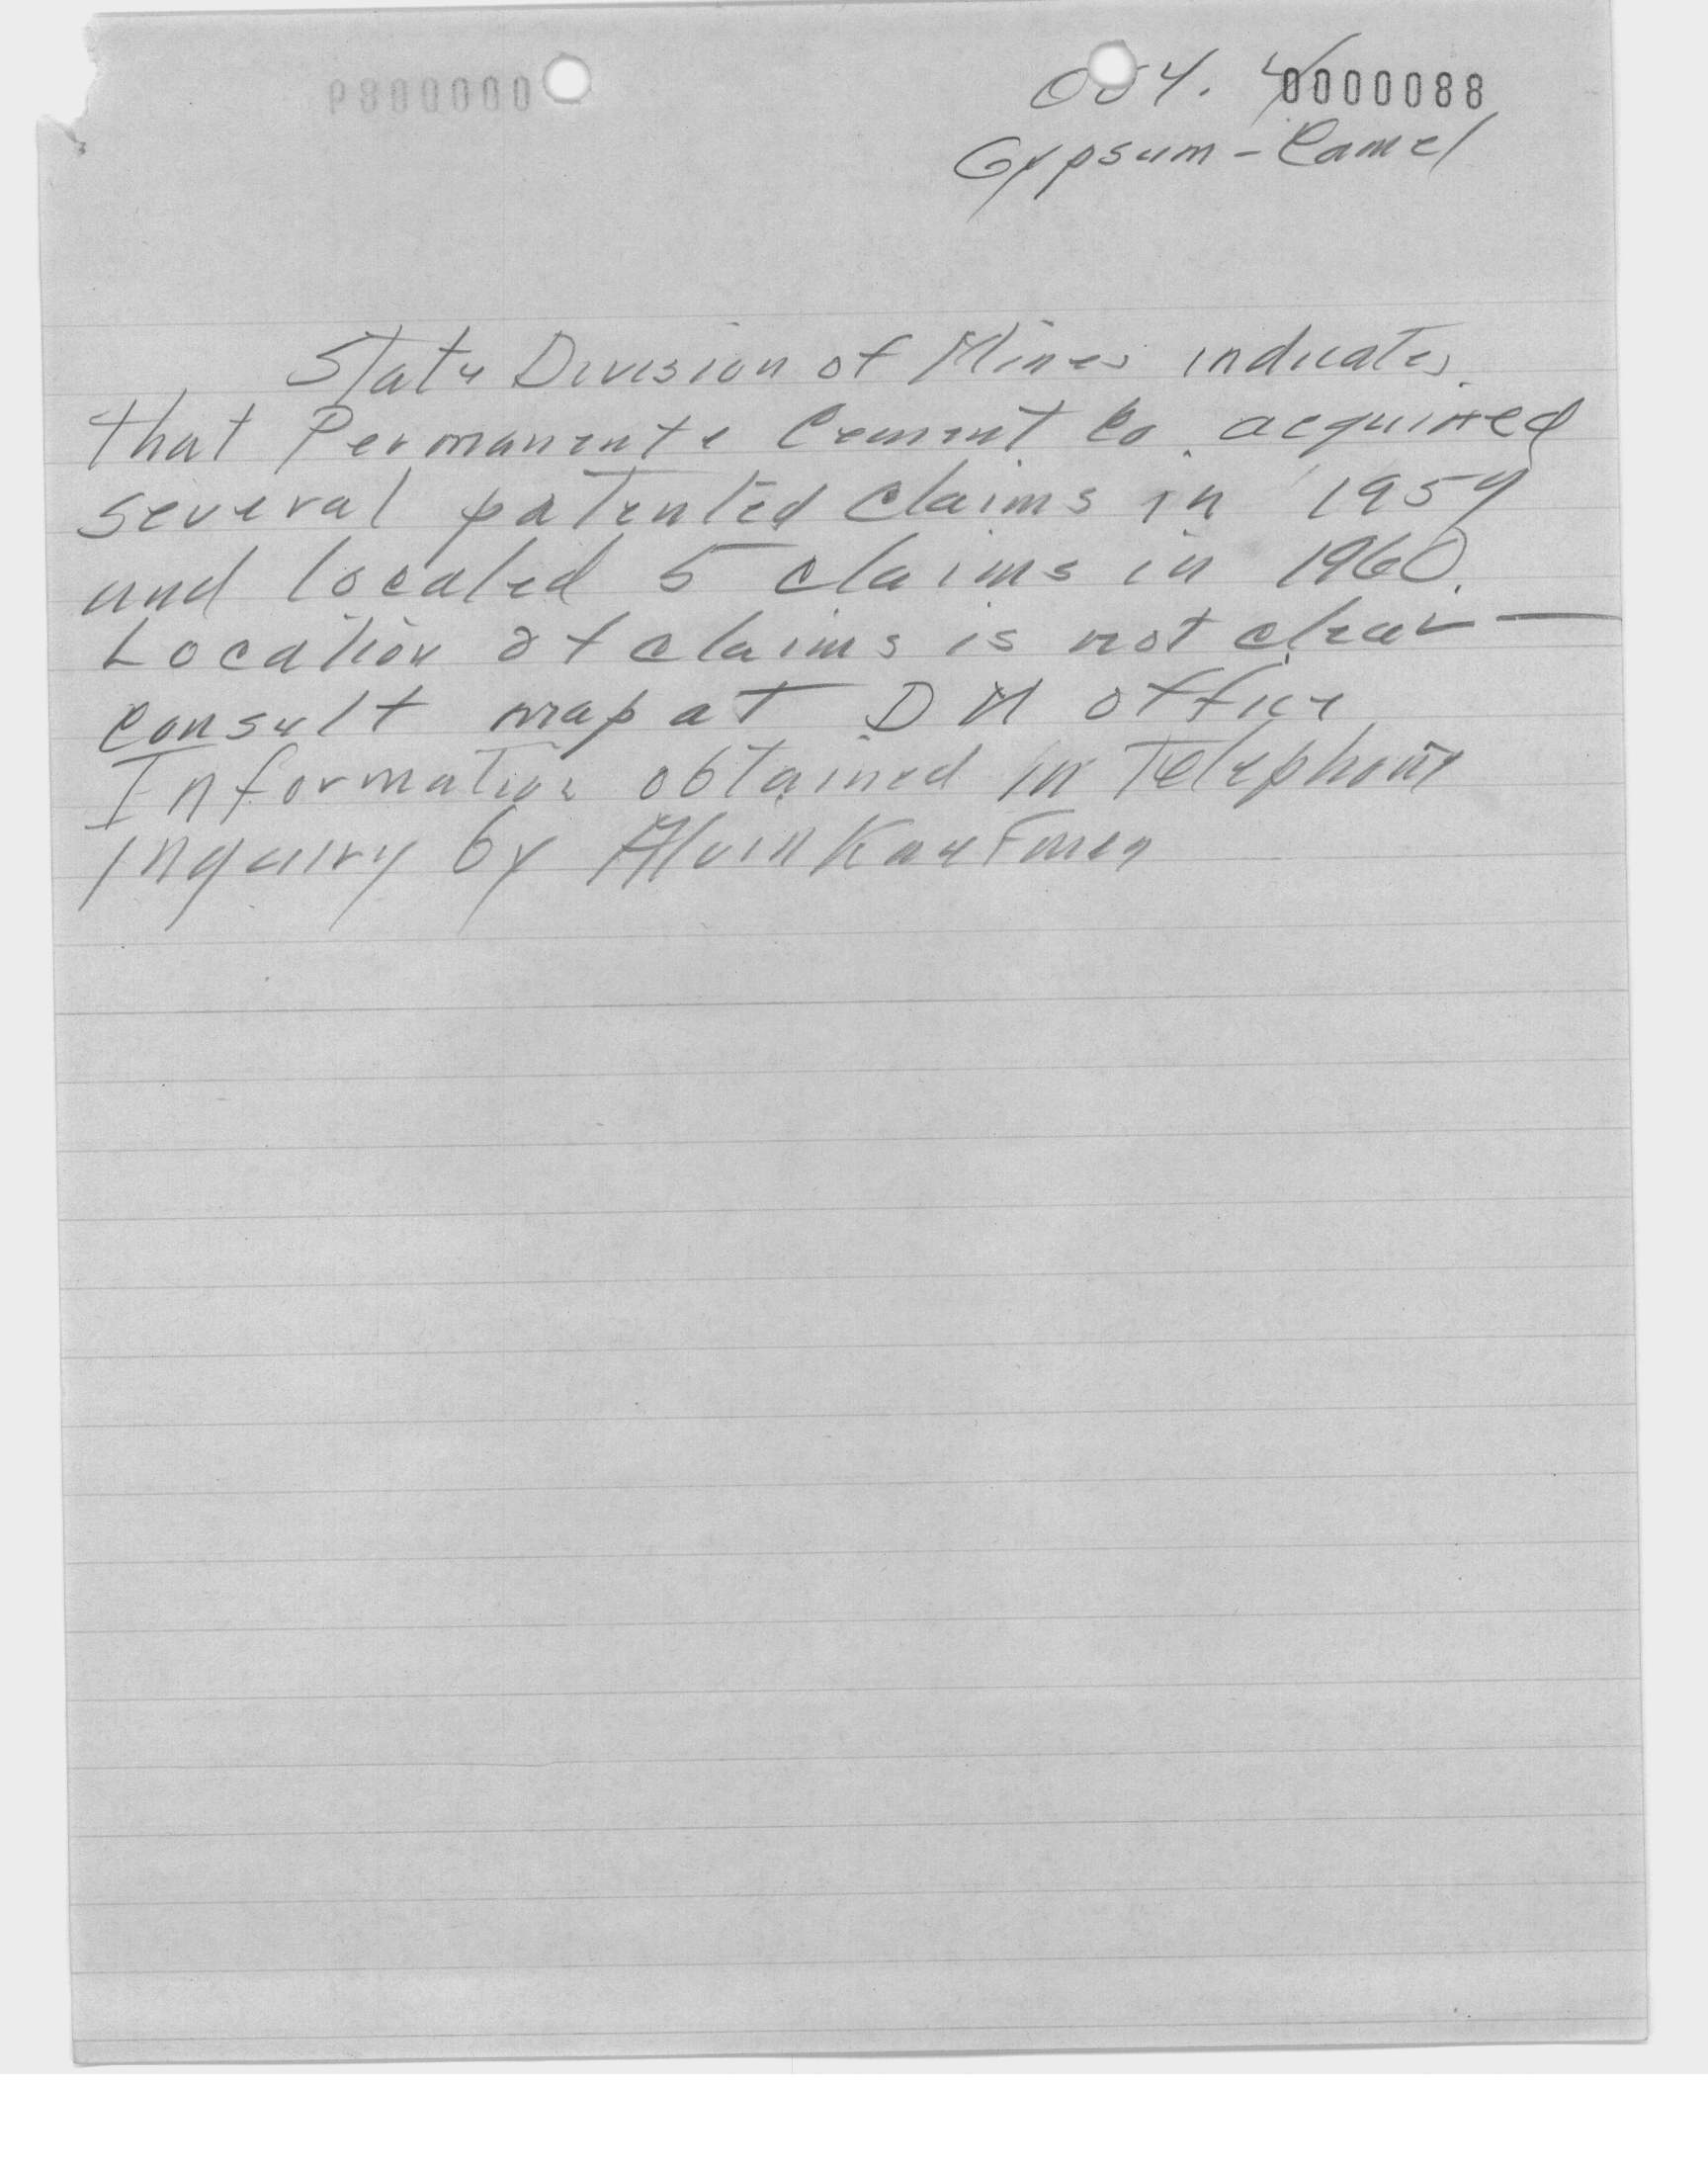 0000088
Gypsum - Camel
State Division of Mines indicates
that Permanente Cement Co. acquired
several patented claims in 1959
and located 5 claims in 1960.
Location of claims is not clear —
consult map at DM office
Information obtained in Telephone
inquiry by Alvin Kaufman